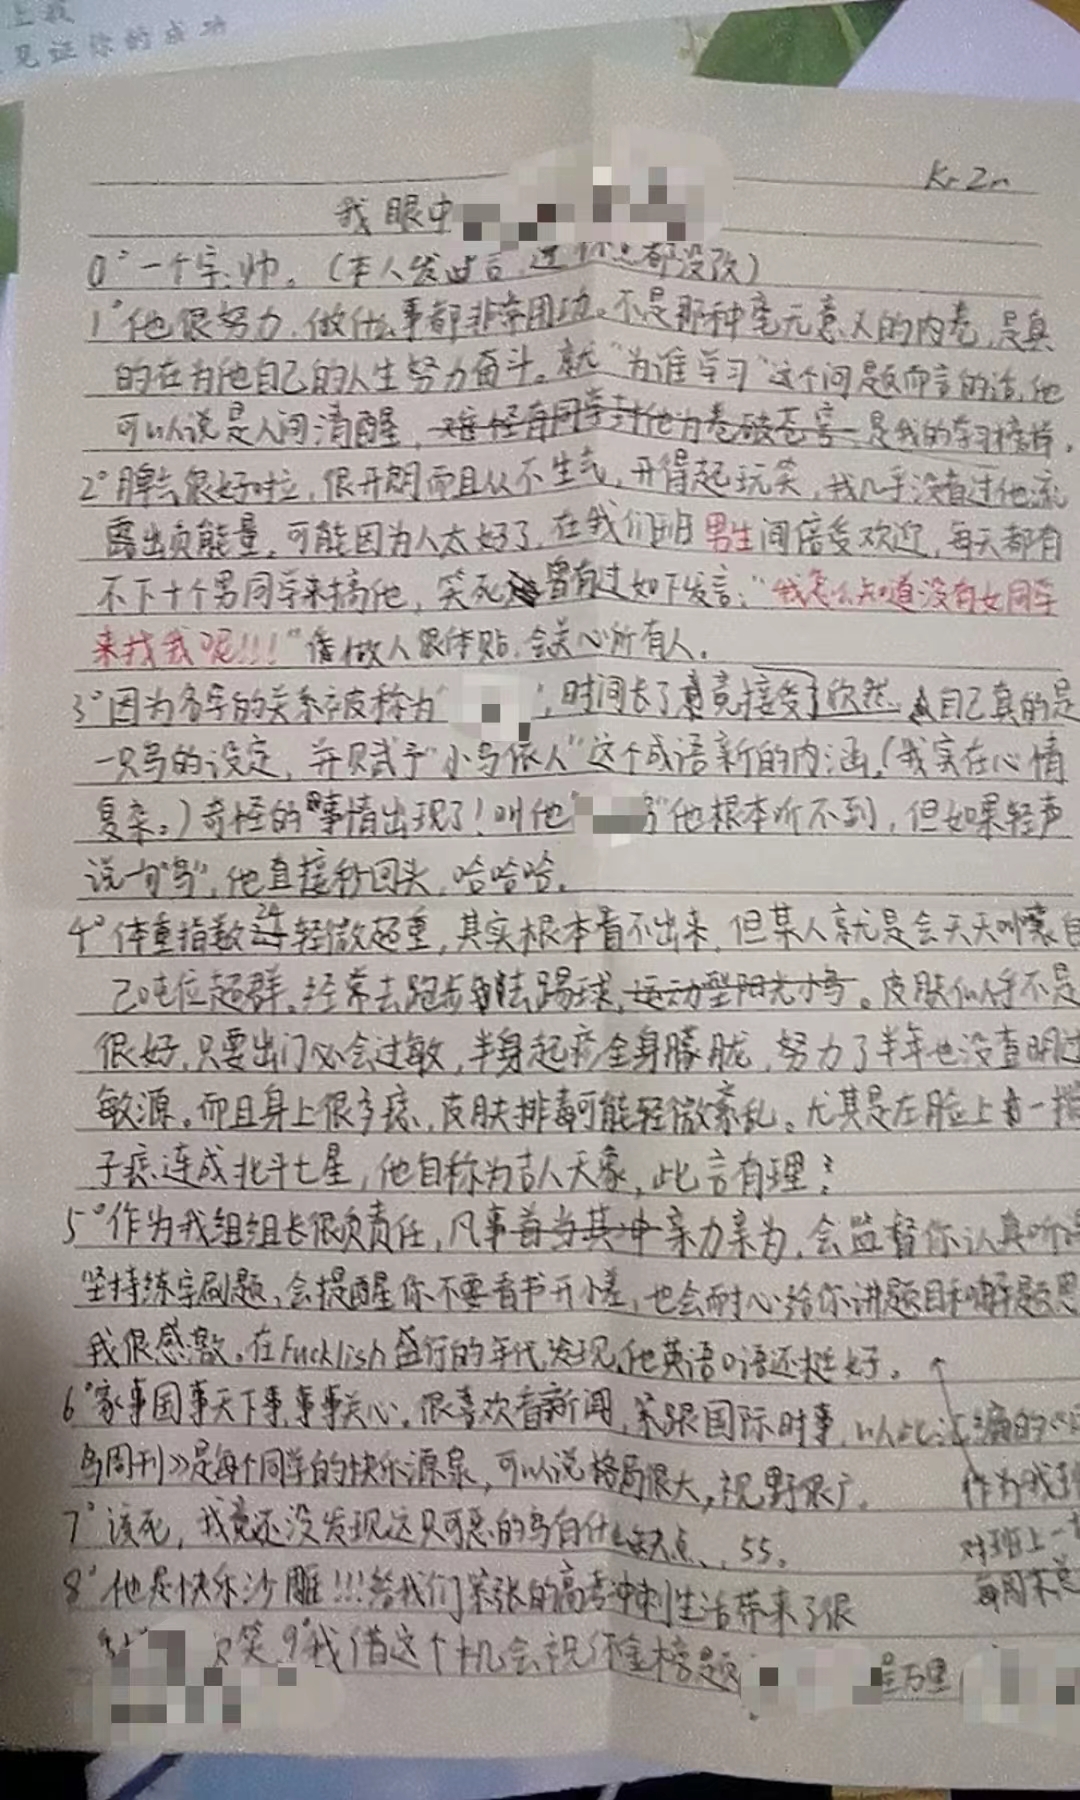 上我
见证你的成功
Kr Zn
我眼中
0°一个字:帅。(本人发过言,都没改)
1°他很努力,做什么事都非常用功。不是那种毫无意义的内卷,是真
的在为他自己的人生努力奋斗。就“为谁学习”这个问题而言的话,他
可以说是人间清醒,难怪有同学封他为卷破苍穹 是我的学习榜样。
2°脾气很好哒,很开朗而且从不生气,开得起玩笑,我几乎没看过他流
露出负能量。可能因为人太好了,在我们班男生间倍受欢迎,每天都有
不下十个男同学来搞他,笑死 曾有过如下发言:“我怎么知道没有女同学
来找我呢!!!”做人很体贴,会关心所有人。
3°因为名字的关系被称为“ ”,时间长了竟接受了欣然 自己真的是
一只鸟的设定,并赋予“小鸟依人”这个成语新的内涵,(我实在心情
复杂。)奇怪的事情出现了!叫他“ ”他根本听不到,但如果轻声
说一句“鸟”,他直接秒回头,哈哈哈。
4°体重指数24轻微超重,其实根本看不出来,但某人就是会天天叫嚷自
己吨位超群。经常去跑步和去踢球,运动型阳光小鸟。皮肤似乎不是
很好,只要出门必会过敏,半身起疹全身朦胧,努力了半年也没查明过
敏源。而且身上很多痣,皮肤排毒可能轻微紊乱。尤其是左脸上有一摊
子痣连成北斗七星,他自称为吉人天象,此言有理?
5°作为我组组长很负责任,凡事首当其冲亲力亲为,会监督你认真听课
坚持练字刷题,会提醒你不要看书开小差,也会耐心给你讲题目和解题思
我很感激。在Fucklish盛行的年代发现,他英语口语还挺好。
6°家事国事天下事,事事关心。很喜欢看新闻,紧跟国际时事,以此汇编的《
鸟周刊》是每个同学的快乐源泉,可以说格局很大,视野很广。
作为我
7°该死,我竟还没发现这只可恶的鸟有什么缺点、、55。
对班上一
8°他是快乐沙雕!!!给我们紧张的高考冲刺生活带来了很
每周末总
笑 9°我借这个机会祝你金榜题 程万里